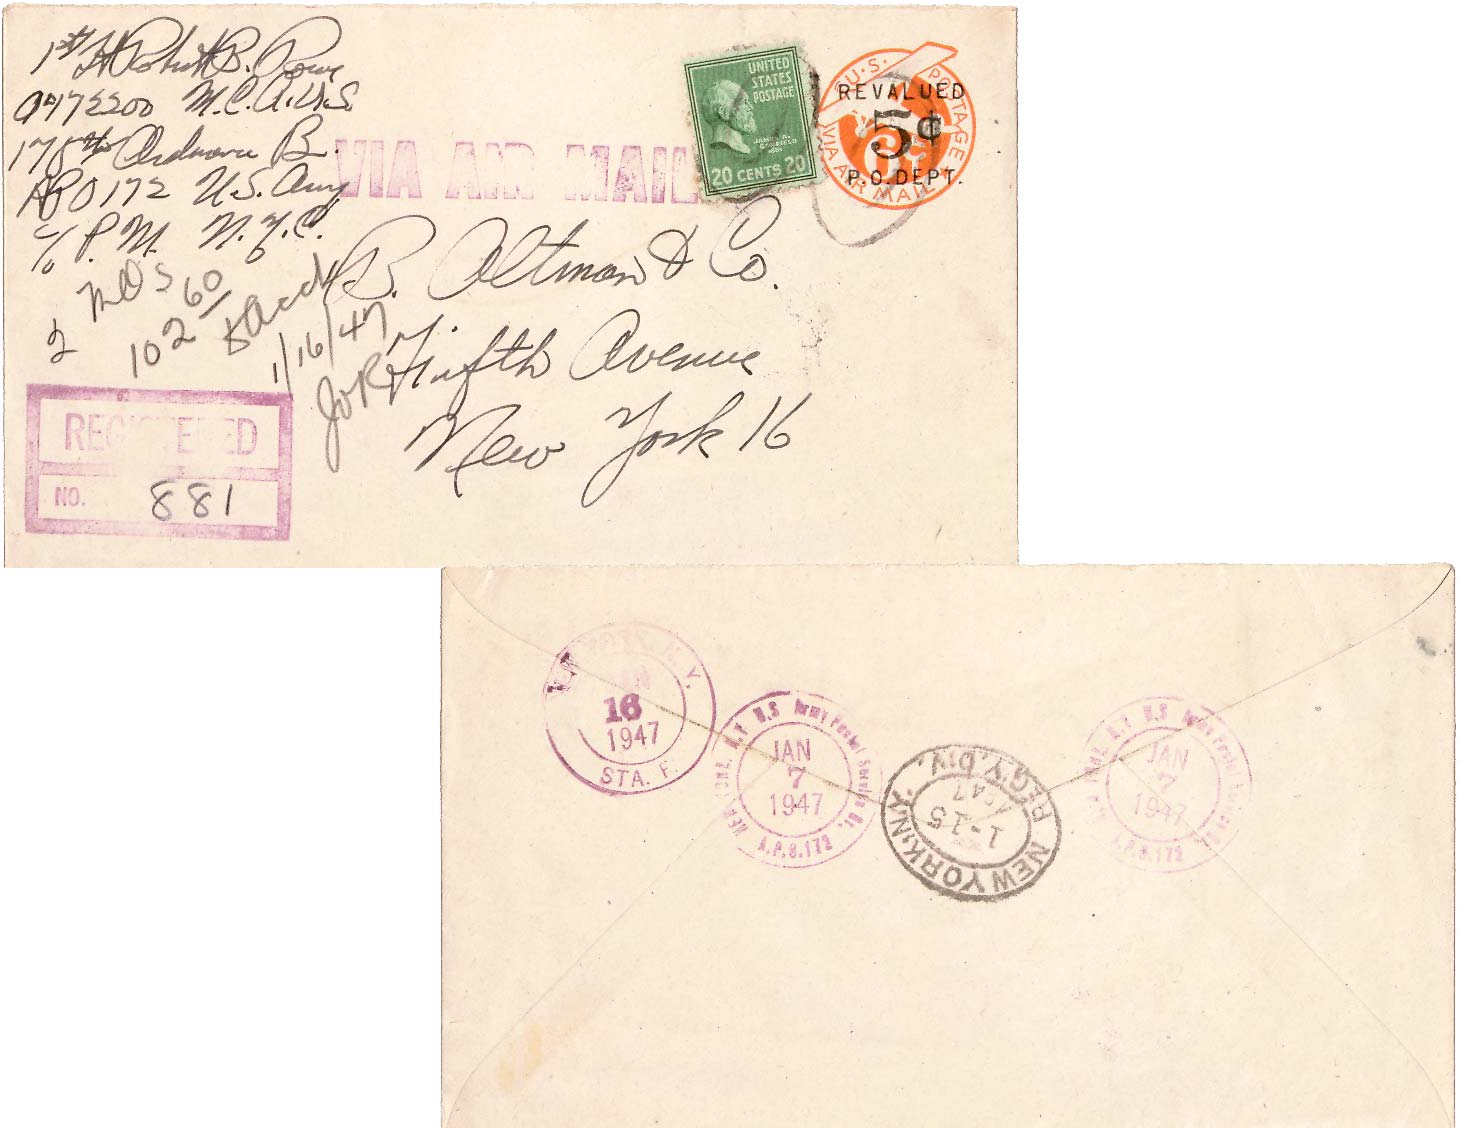 1st Lt Robert B. Rowe
O472200 M.C. A.U.S.
178th Ordnance B.
APO 172 U.S. Army
c/o P.M. N.Y.C.
VIA AIR MAIL
UNITED
STATES
POSTAGE
JAMES A.
GARFIELD
1881
20 CENTS 20
U.S. POSTAGE
VIA AIR MAIL
6¢
REVALUED
5¢
P.O. DEPT.
B. Altman & Co.
Fifth Avenue
New York 16
2 MOs
102 60
1/16/47
JOR
REGISTERED
NO. 881
N.Y.
16
1947
STA. F.
N.Y. U.S Army Postal Service
JAN
7
1947
A.P.O. 172
NEW YORK, N.Y.
1-15
1947
REG'Y. DIV.
N.Y. U.S Army Postal Service
JAN
7
1947
A.P.O. 172